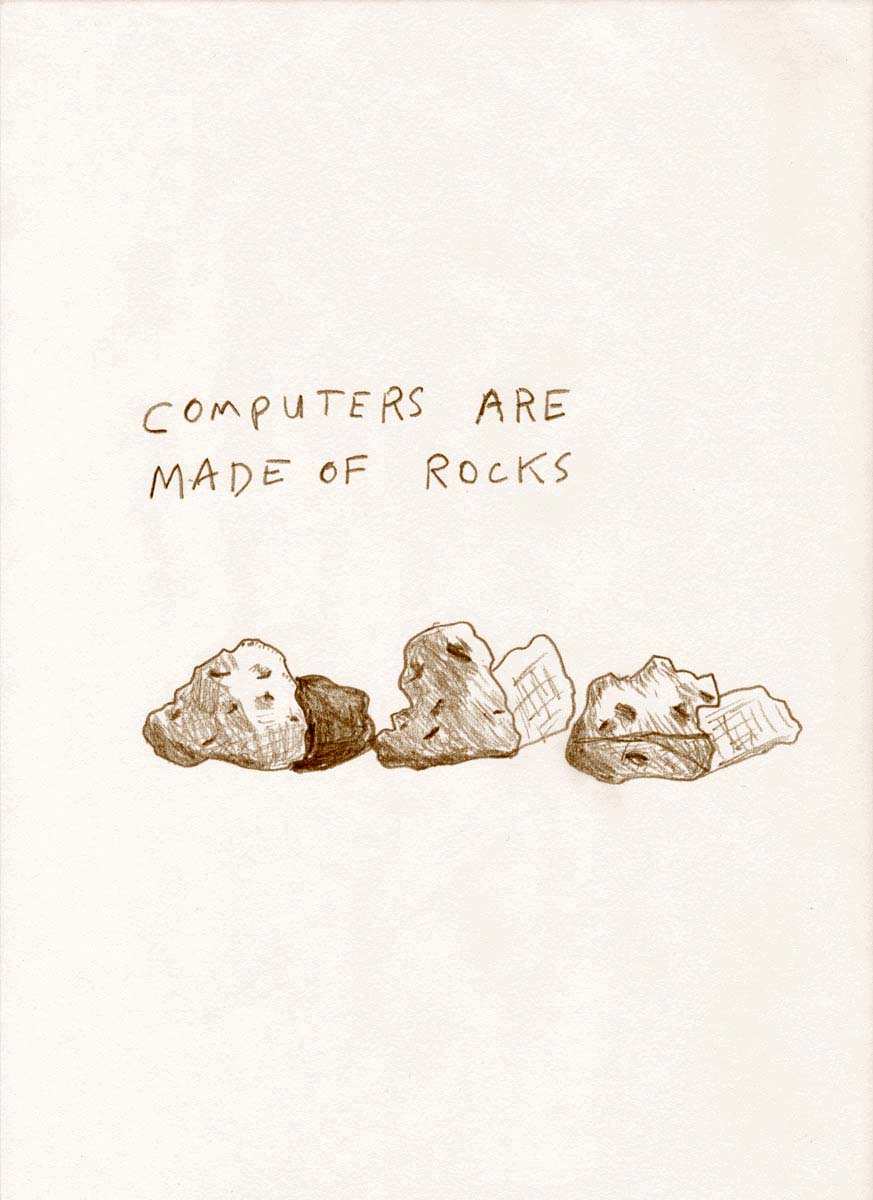 COMPUTERS ARE
MADE OF ROCKS